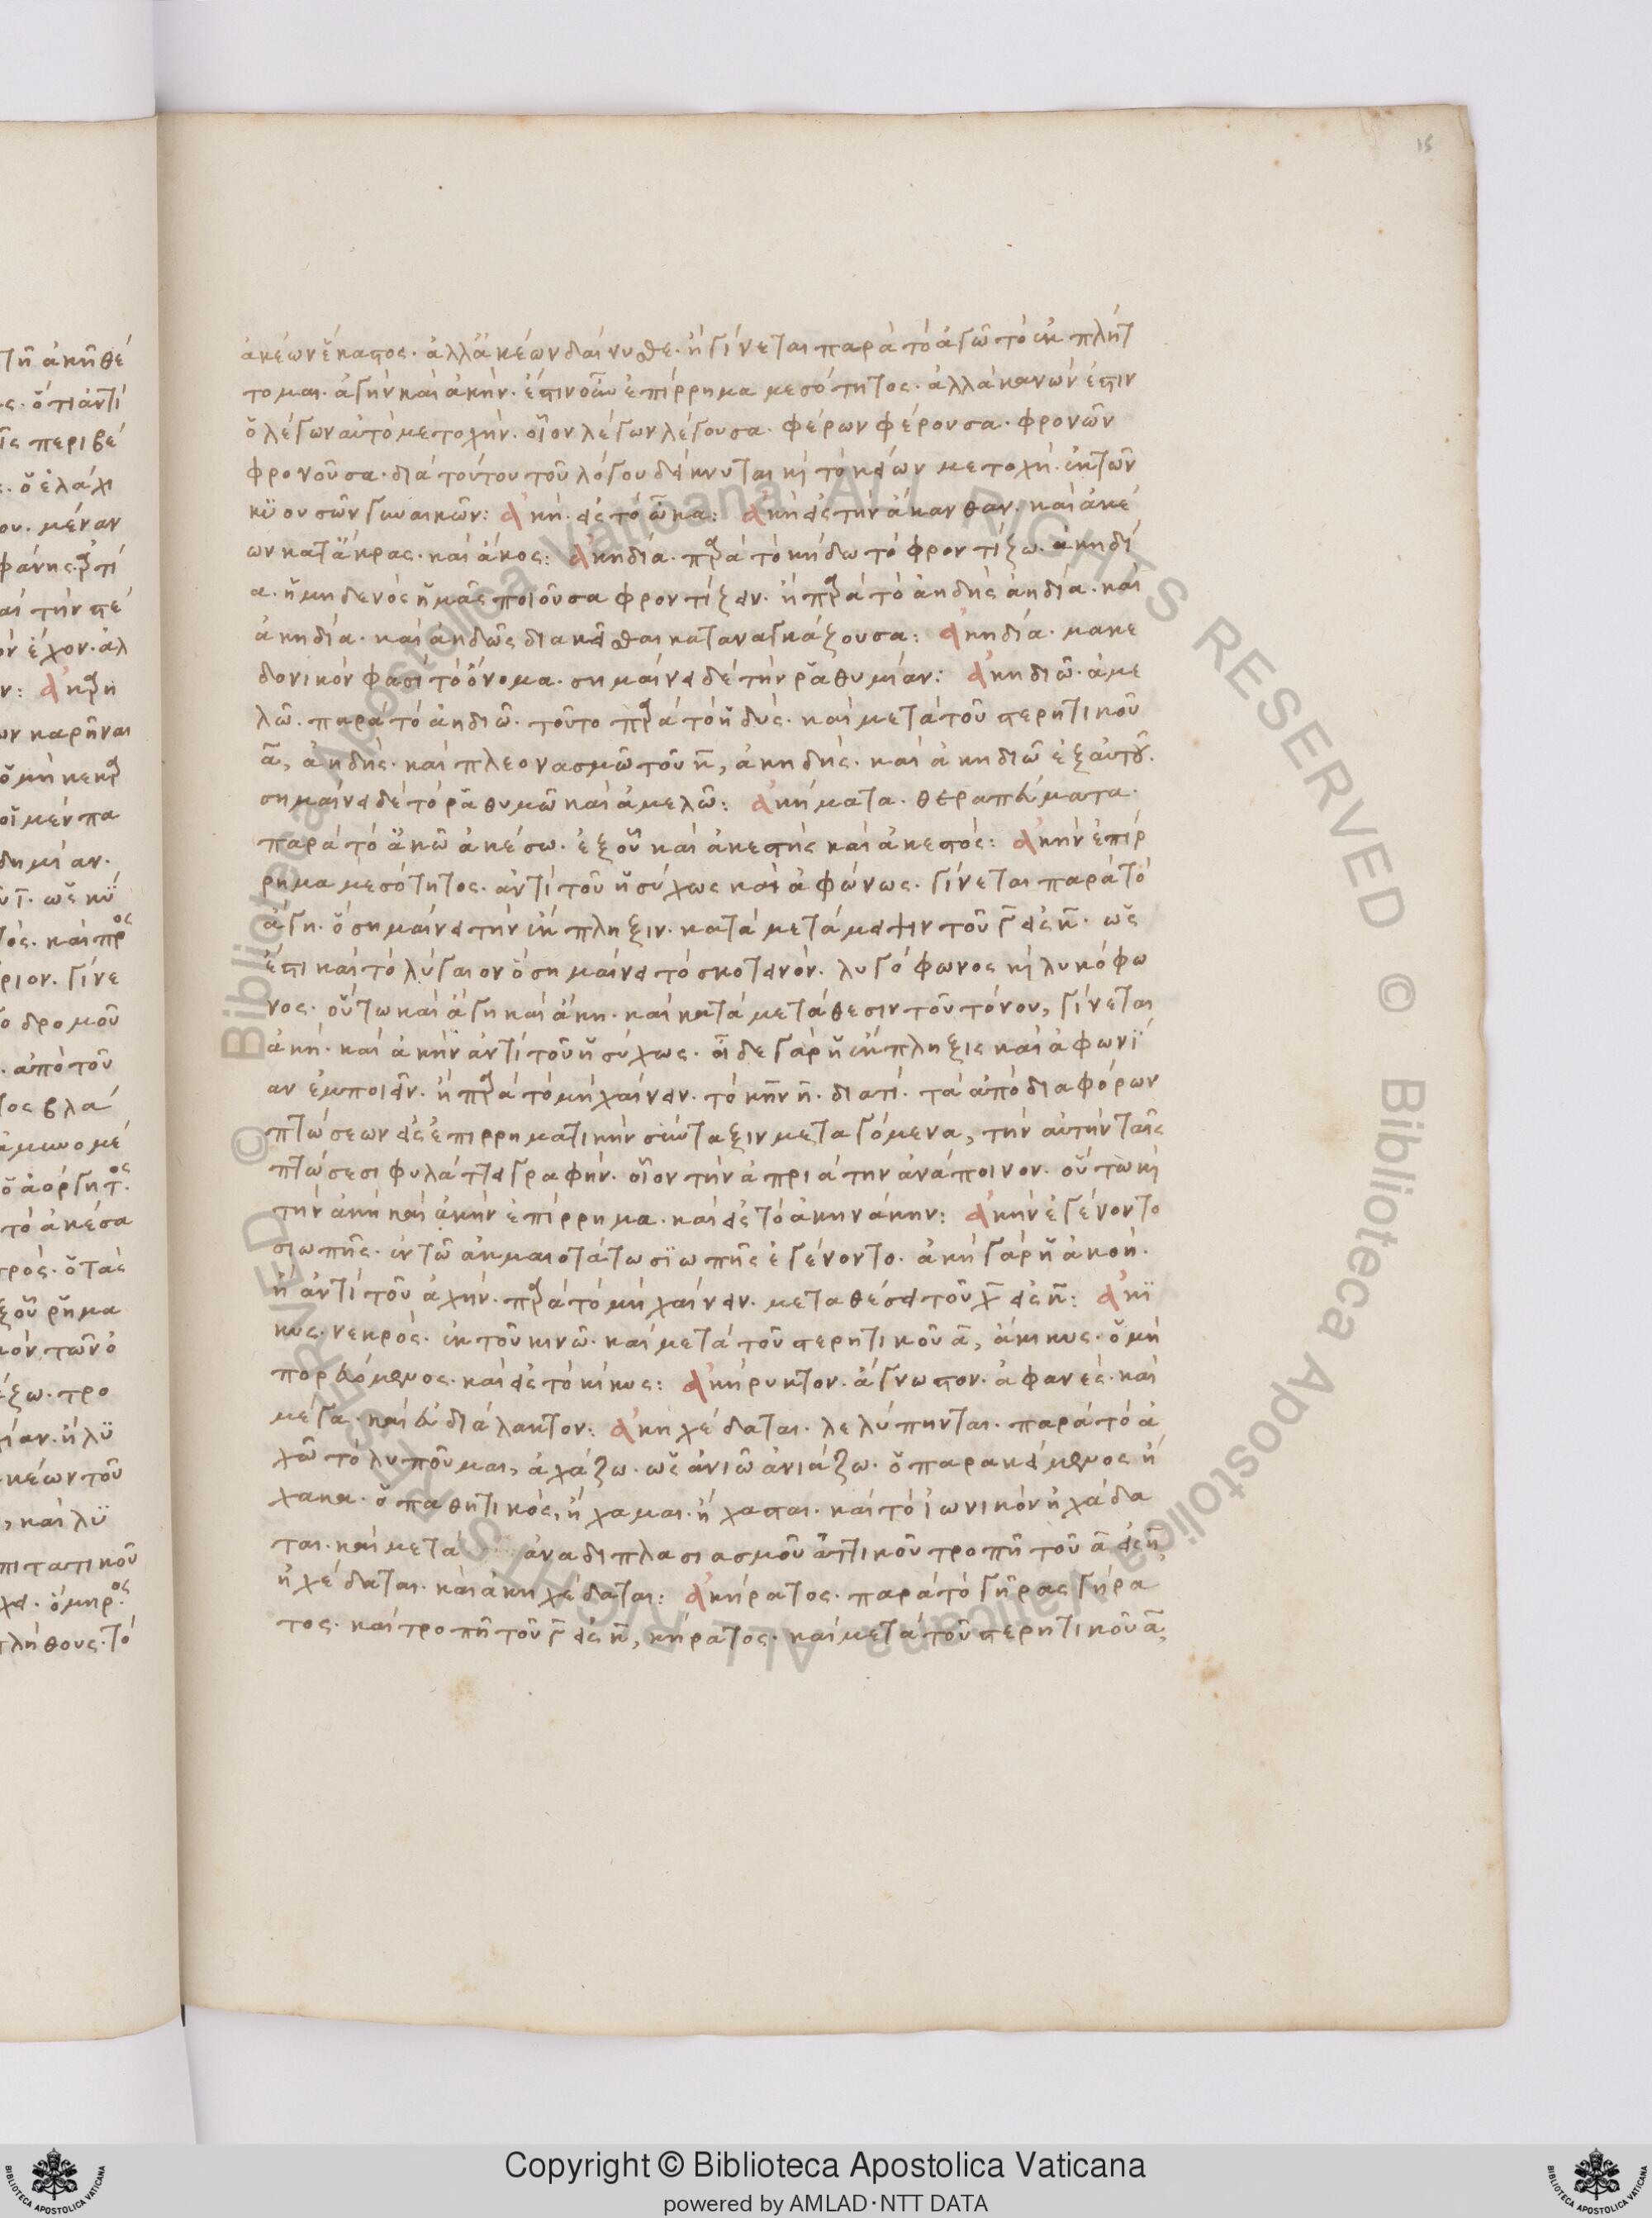 15
ἀκέων ἕκαστος. ἀλλ' ἀκέων δαίνυσθε. ἢ γίνεται παρὰ τὸ ἀγῶ τὸ ἐκπλήτ
τομαι. ἀγὴν καὶ ἀκήν. ἔστιν οὖν ἐπίρρημα μεσότητος. ἀλλὰ κανών ἐστιν
ὁ λέγων αὐτὸ μετοχήν. οἷον λέγων λέγουσα. φέρων φέρουσα. φρονῶν
φρονοῦσα. διὰ τούτου τοῦ λόγου δείκνυται κὶ τὸ κείων μετοχή. ἐκ τῶν
κϋουσῶν γυναικῶν: ἀκή. εἰς τὸ ὦκα: ἀκὴ εἰς τὴν ἄκανθαν. καὶ ἀκέ
ων κατ' ἄκρας. καὶ ἄκος: ἀκηδία. παρὰ τὸ κήδω τὸ φροντίζω. ἀκηδί
α. ἡ μηδενὸς ἡμᾶς ποιοῦσα φροντίζειν. ἢ παρὰ τὸ ἀηδὴς ἀηδία. καὶ
ἀκηδία. καὶ ἀηδῶς διακεῖσθαι καταναγκάζουσα: ἀκηδία. μακε
δονικόν φασὶ τὸ ὄνομα. σημαίνει δὲ τὴν ῥαθυμίαν: ἀκηδιῶ. ἀμε
λῶ. παρὰ τὸ ἀηδιῶ. τοῦτο παρὰ τὸ ἡδύς. καὶ μετὰ τοῦ στερητικοῦ
α, ἀηδής. καὶ πλεονασμῶ τοῦ κ, ἀκηδής. καὶ ἀκηδιῶ ἐξ αὐτοῦ.
σημαίνει δὲ τὸ ῥαθυμῶ καὶ ἀμελῶ: ἀκήματα. θεραπεύματα.
παρὰ τὸ ἀκῶ ἀκέσω. ἐξ οὗ καὶ ἀκεστὴς καὶ ἀκεστός: ἀκὴν ἐπίρ
ρημα μεσότητος. ἀντὶ τοῦ ἡσύχως καὶ ἀφώνως. γίνεται παρὰ τὸ
ἄγη. ὃ σημαίνει τὴν ἔκπληξιν. κατὰ μετάμειψιν τοῦ γ εἰς κ. ὡς
ἐπὶ καὶ τὸ λύγαιον ὃ σημαίνει τὸ σκοτεινόν. λυγόφωνος κὶ λυκόφω
νος. οὕτω καὶ ἄγη καὶ ἄκη. καὶ κατὰ μετάθεσιν τοῦ τόνου, γίνεται
ἀκή. καὶ ἀκὴν ἀντὶ τοῦ ἡσύχως. οἶδε γὰρ ἡ ἔκπληξις καὶ ἀφωνί
αν ἐμποιεῖν. ἢ παρὰ τὸ μὴ χαίνειν. τὸ κῆν η. διατί. τὰ ἀπὸ διαφόρων
πτώσεων εἰς ἐπιρρηματικὴν σύνταξιν μεταγόμενα, τὴν αὐτὴν ταῖς
πτώσεσι φυλάττει γραφήν. οἷον τὴν ἀπριάτην ἀνάποινον. οὕτω κὶ
τὴν ἀκὴ καὶ ἀκὴν ἐπίρρημα. καὶ εἰς τὸ ἀκην ἀκην: ἀκὴν ἐγένοντο
σιωπῆς. ἐν τῶ ἀκμαιοτάτω σϊωπῆς ἐγένοντο. ἀκὴ γὰρ ἡ ἀκοή.
ἢ ἀντὶ τοῦ ἀχήν. παρὰ τὸ μὴ χαίνειν. μεταθέσει τοῦ χ εἰς κ: ἀκϊ
κυς. νεκρός. ἐκ τοῦ κινῶ. καὶ μετὰ τοῦ στερητικοῦ α, ἄκικυς. ὁ μὴ
πορευόμενος. καὶ εἰς τὸ κίκυς: ἀκήρυκτον. ἄγνωστον. ἀφανές. καὶ
μέγα. καὶ εὐδιάλακτον: ἀκηχέδαται. λελύπηνται. παρὰ τὸ ἀ
χῶ τὸ λυποῦμαι, ἀχάζω. ὡς ἀνιῶ ἀνιάζω. ὁ παρακείμενος ἤ
χακα. ὁ παθητικός, ἤχαμαι. ἤχασται. καὶ τὸ ἰωνικὸν ἠχάδα
ται. καὶ μετὰ ἀναδιπλασιασμοῦ ἀττικοῦ τροπῆ τοῦ α εἰς η
ἠχέδαται. καὶ ἀκηχέδαται: ἀκήρατος. παρὰ τὸ γῆρας γήρα
τος. καὶ τροπῆ τοῦ γ εἰς κ, κήρατος. καὶ μετὰ τοῦ στερητικοῦ α,
Copyright © Biblioteca Apostolica Vaticana
powered by AMLAD・NTT DATA